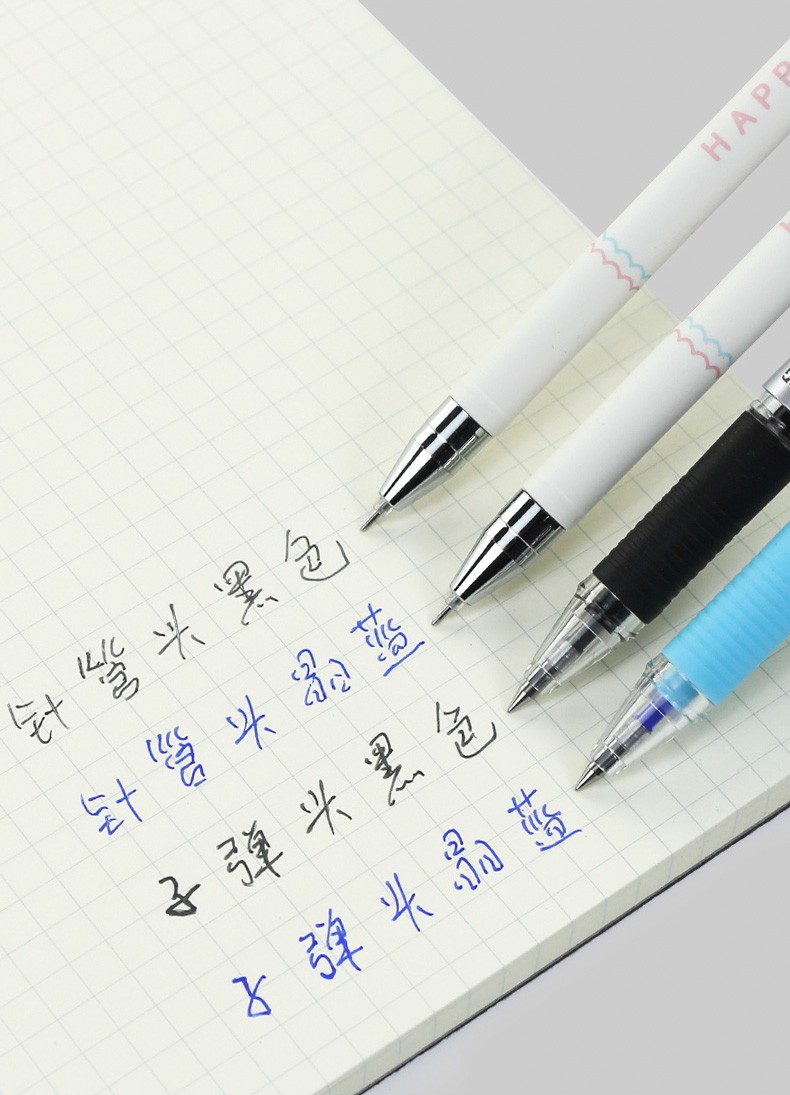 HAPP
针管头黑色
针管头晶蓝
子弹头黑色
子弹头晶蓝